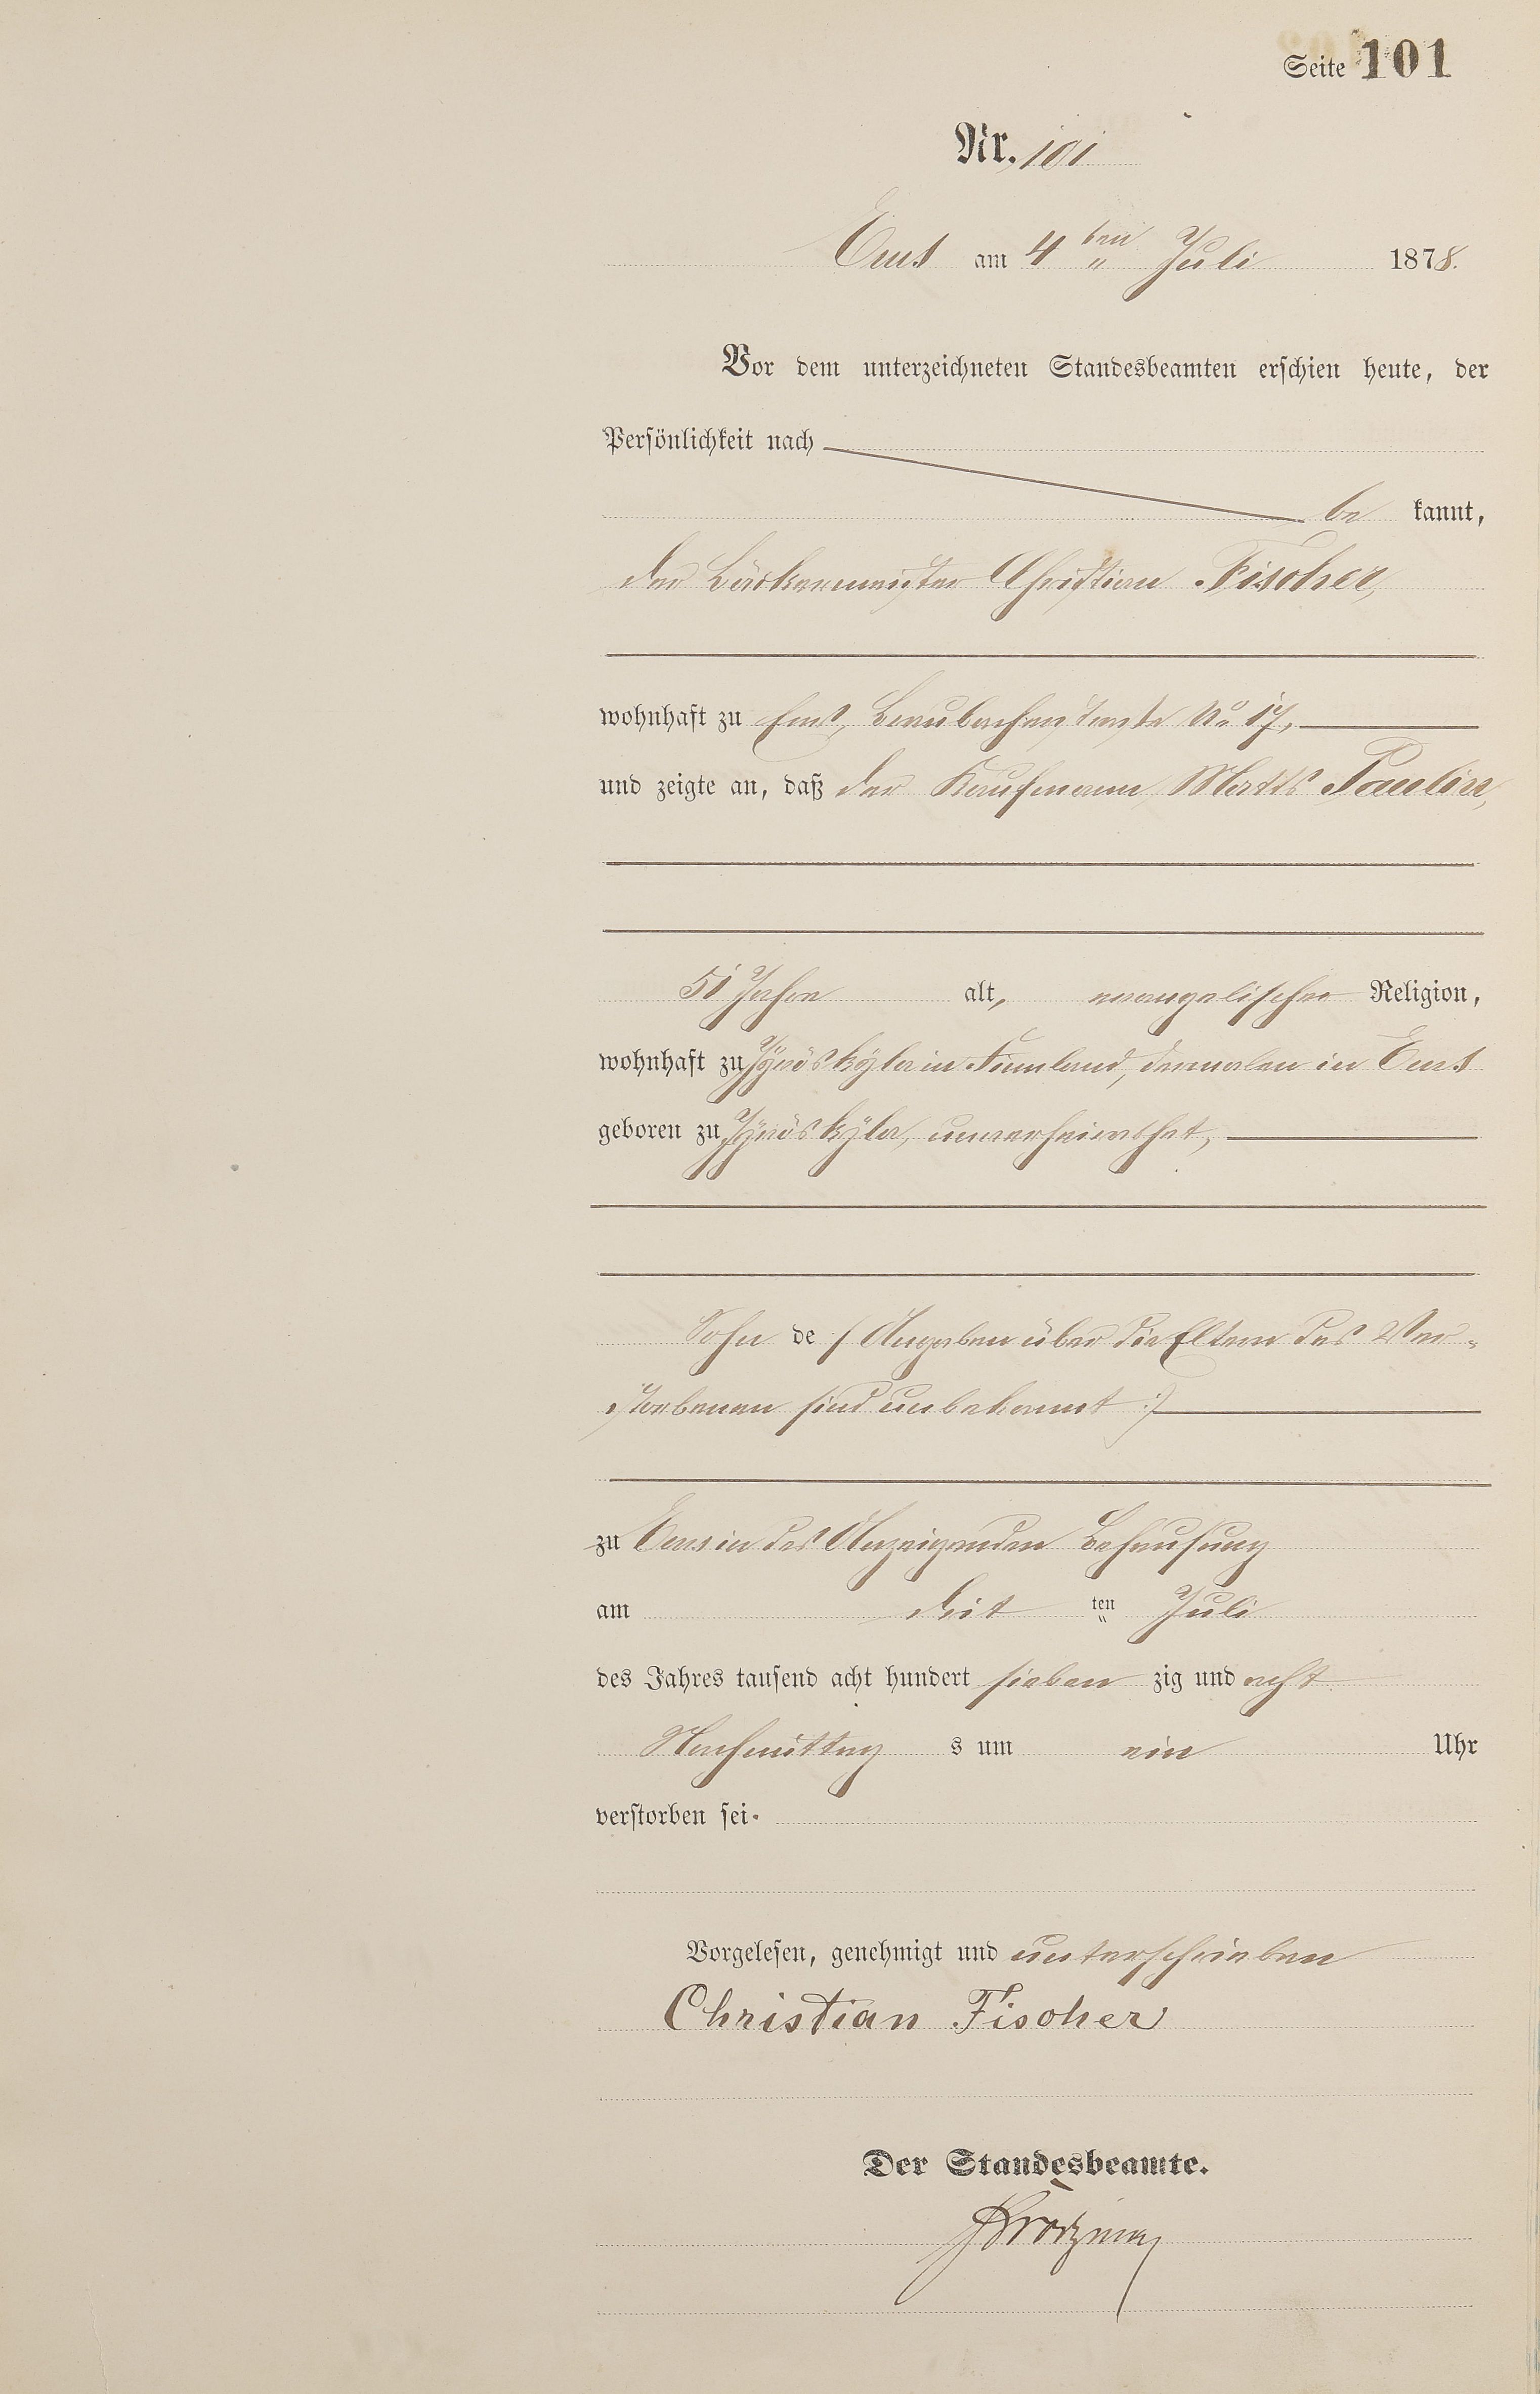 Seite 101
Nr. 101
Ems am 4 ten Juli 1878.
Vor dem unterzeichneten Standesbeamten erschien heute, der
Persönlichkeit nach
be kannt,
der Bäckermeister Christian Fischer,
wohnhaft zu Ems, Braubacherstraße No 17,
und zeigte an, daß der Kaufmann Matts Paulin,
51 Jahre alt, evangelischer Religion,
wohnhaft zu Jyväskyla in Finnland, dermalen in Ems
geboren zu Jyväskyla, unverheirathet,
Sohn de (Angaben über die Eltern des Ver-
storbenen sind unbekannt :)
zu Ems in des Anzeigenden Behausung
am drit ten Juli
des Jahres tausend acht hundert sieben zig und acht
Nachmittag s um ein Uhr
verstorben sei.
Vorgelesen, genehmigt und unterschrieben
Christian Fischer
Der Standesbeamte.